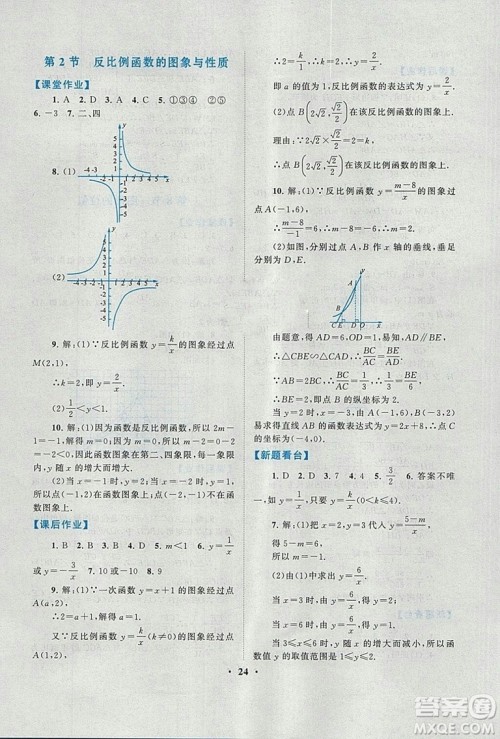 第2节 反比例函数的图象与性质
【课堂作业】
1. A 2. D 3. A 4. C 5. ①③④
6. -3 7. 二、四
8. (1)
(2)
9. 解:(1)∵反比例函数 y=k/x 的图象经过点
M(2,1),
∴k=2,即 y=2/x.
(2)1/2<y<2.
10. 解:(1)因为函数是反比例函数,所以 m²-5=
-1,解得 m=±2.
(2)当 m=-2 时,函数图象在第二、四象限,所以
在每个象限内,y 随 x 的增大而增大.
当 m=2 时,函数图象在第一、三象限,所以在每个象
限内,y 随 x 的增大而减小.
(3)当 m=1 时,点在函数图象上;当 m≠1 时,点不在
函数图象上.
【课后作业】
1. B 2. B 3. D 4. D 5. m<1 6. y=1/x,
或 y=-3/x 7. 10 8. 9
9. 解:(1)∵一次函数 y=x+1 的图象经过点
A(a,2),
∴2=a+1,∴a=1.
又∵反比例函数 y=k/x(k≠0)的图象经过点
A(1,2),
∴2=k/1,∴k=2,
即 a 的值为 1,反比例函数的表达式为 y=2/x.
(2)点 B(2√2,√2/2)在该反比例函数的图象上.
理由:∵2√2×√2/2=2=k,
∴点 B(2√2,√2/2)在该反比例函数的图象上.
10. 解:(1)∵反比例函数 y=(m-8)/x 的图象过
点 A(-1,6),∴(m-8)/-1=6,∴m-8=-6,∴m=2.
(2)如图,分别过点 A,B 作 x 轴的垂线,垂足分
别为 D,E.
由题意,得 AD=6,OD=1,易知,AD∥BE,
∴△CBE∽△CAD,∴BC/AC=BE/AD.
∵AB=2BC,∴BC/AC=1/3,∴1/3=BE/6,
∴BE=2,即点 B 的纵坐标为 2.
易求得直线 AB 的函数表达式为 y=2x+8,∴点 C
的坐标为(-4,0).
【新题看台】
1. D 2. D 3. 7 4. 4 5. 3/2 6. 答案不唯
一,如 y=2/x,只要 y=k/x(0<k≤4).
7. 解:(1)把 x=1,y=3 代入 y=(5-m)/x,得 3=
(5-m)/1,
所以 m=2.
(2)由(1)中求出的 m 值可知,y=3/x.
当 x=3 时,y=3/3=1;
当 x=6 时,y=3/6=1/2.
当 3≤x≤6 时,y 随 x 的增大而减小,所以函
数值 y 的取值范围是 1/2≤y≤1.
24
作业答案圈